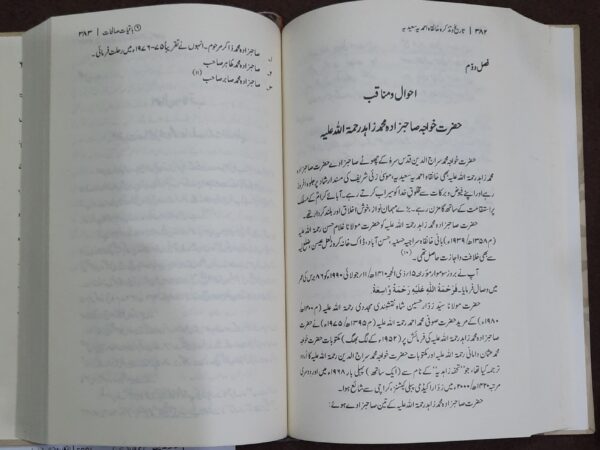 ۳۸۲ | تاریخ و تذکرہ خانقاہ احمدیہ سعیدیہ
فصل دوم
احوال و مناقب
حضرت خواجہ صاحبزادہ محمد زاہد رحمۃ اللہ علیہ
حضرت خواجہ محمد سراج الدین قدس سرہٗ کے چھوٹے صاحبزادے حضرت صاحبزادہ
محمد زاہد رحمۃ اللہ علیہ بھی خانقاہ احمدیہ سعیدیہ، موسیٰ زئی شریف کی مسند ارشاد پر جلوہ افروز
رہے اور اپنے فیوض و برکات سے مخلوقِ خدا کو سیراب کرتے رہے۔ آبائے کرامؒ کے مسلک
پر استقامت کے ساتھ گامزن رہے۔ بڑے مہمان نواز، خوش اخلاق اور بلند کردار تھے۔
حضرت صاحبزادہ محمد زاہد رحمۃ اللہ علیہ کو حضرت مولانا غلام حسن رحمۃ اللہ علیہ
(م ۱۳۵۸ھ/۱۹۳۹ء) بانی خانقاہ سراجیہ حسنیہ، حسن آباد، ڈاک خانہ کروڑ لعل عیسن، ضلع لیہ
سے بھی خلافت و اجازت حاصل تھی۔(۱۰)
آپ نے بروز سوموار مؤرخہ ۱۵ ذی الحجہ ۱۴۱۰ھ/۱۱ جولائی ۱۹۹۰ء کو ۸۶ برس کی عمر
میں وصال فرمایا۔ فَرَحْمَةُ اللّٰهِ عَلَيْهِ رَحْمَةً وَّاسِعَةً
حضرت مولانا سید زوار حسین شاہ نقشبندی مجددی رحمۃ اللہ علیہ (م ۱۴۰۰ھ/
۱۹۸۰ء) کے مرید حضرت صوفی محمد احمد رحمۃ اللہ علیہ (م ۱۳۹۵ھ/۱۹۷۵ء) نے حضرت
صاحبزادہ محمد زاہد رحمۃ اللہ علیہ کی فرمائش پر (۱۹۵۲ء کے لگ بھگ) مکتوبات حضرت خواجہ
محمد عثمان دامانی رحمۃ اللہ علیہ اور مکتوبات حضرت خواجہ محمد سراج الدین رحمۃ اللہ علیہ کا اردو
ترجمہ کیا تھا، جو ”تحفہ زاہدیہ“ کے نام سے (ایک ساتھ) پہلی بار ۱۹۶۸ء میں اور دوسری
مرتبہ ۱۴۲۰ھ/۲۰۰۰ء میں زوار اکیڈمی پبلی کیشنز، کراچی سے شائع ہوا۔
حضرت صاحبزادہ محمد زاہد رحمۃ اللہ علیہ کے تین صاحبزادے ہوئے:
باقیات صالحات | ۳۸۳
صاحبزادہ محمد ذاکر مرحوم۔ انہوں نے تقریباً ۷۵-۱۹۷۶ء میں رحلت فرمائی۔
صاحبزادہ محمد طاہر صاحب
صاحبزادہ محمد صابر صاحب(۱۱)